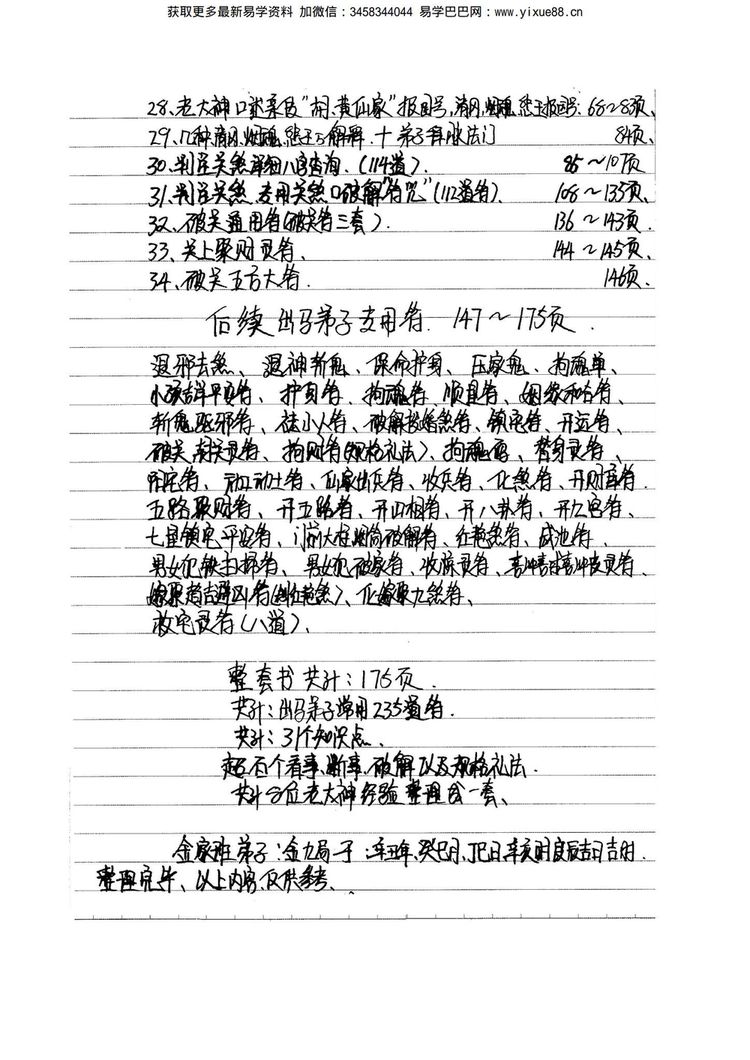 获取更多最新易学资料 加微信：3458344044 易学巴巴网：www.yixue88.cn
28、老大神口述亲段"胡、黄仙家"报国号，清风烟魂悲王报号：68-83页、
29、几种清风烟魂悲王与解释、十弟子拜师法门 84页、
30、判定关煞详细八字查询、（114道）、 85～107页
31、判定关煞、专用关煞口破解"符咒"（112道符）、 108～135页、
32、破关通用符（破关符三套）、 136～143页、
33、关上聚财灵符、 144～145页、
34、破关五方大符、 146页、
后续 出马弟子专用符、147～175页、
退邪去煞、退神斩鬼、保命护身、压家鬼、拘魂单、
小孩吉祥平安符、护身符、拘魂符、顺星符、姻缘和合符、
斩鬼驱邪符、祛小人符、破解披婚煞符、镇宅符、开运符、
破关、封关灵符、拘财符（规格礼法）、拘魂、替身灵符、
阳宅符、动工动土符、仙家出兵符、收兵符、化煞符、开财库符、
五路聚财符、开五路符、开山根符、开八卦符、开九宫符、
七星镇宅平安符、门前大树烟筒破解符、红艳煞符、咸池符、
男女犯铁扫帚符、男女犯破家符、收惊灵符、
嫁娶趋吉避凶符（红艳煞）、化嫁娶九煞符、
救宅灵符（八道）、
整套书 共计：175页、
共计：出马弟子常用235道符、
共计：31个知识点、
超百个看事、断事、破解以及规格礼法、
共计8位老大神经验 整理合一套、
金家班弟子：金九局 于：辛丑年、癸巳月、丁巳日、辛亥时 良辰吉日吉时、
整理完毕、以上内容仅供参考、